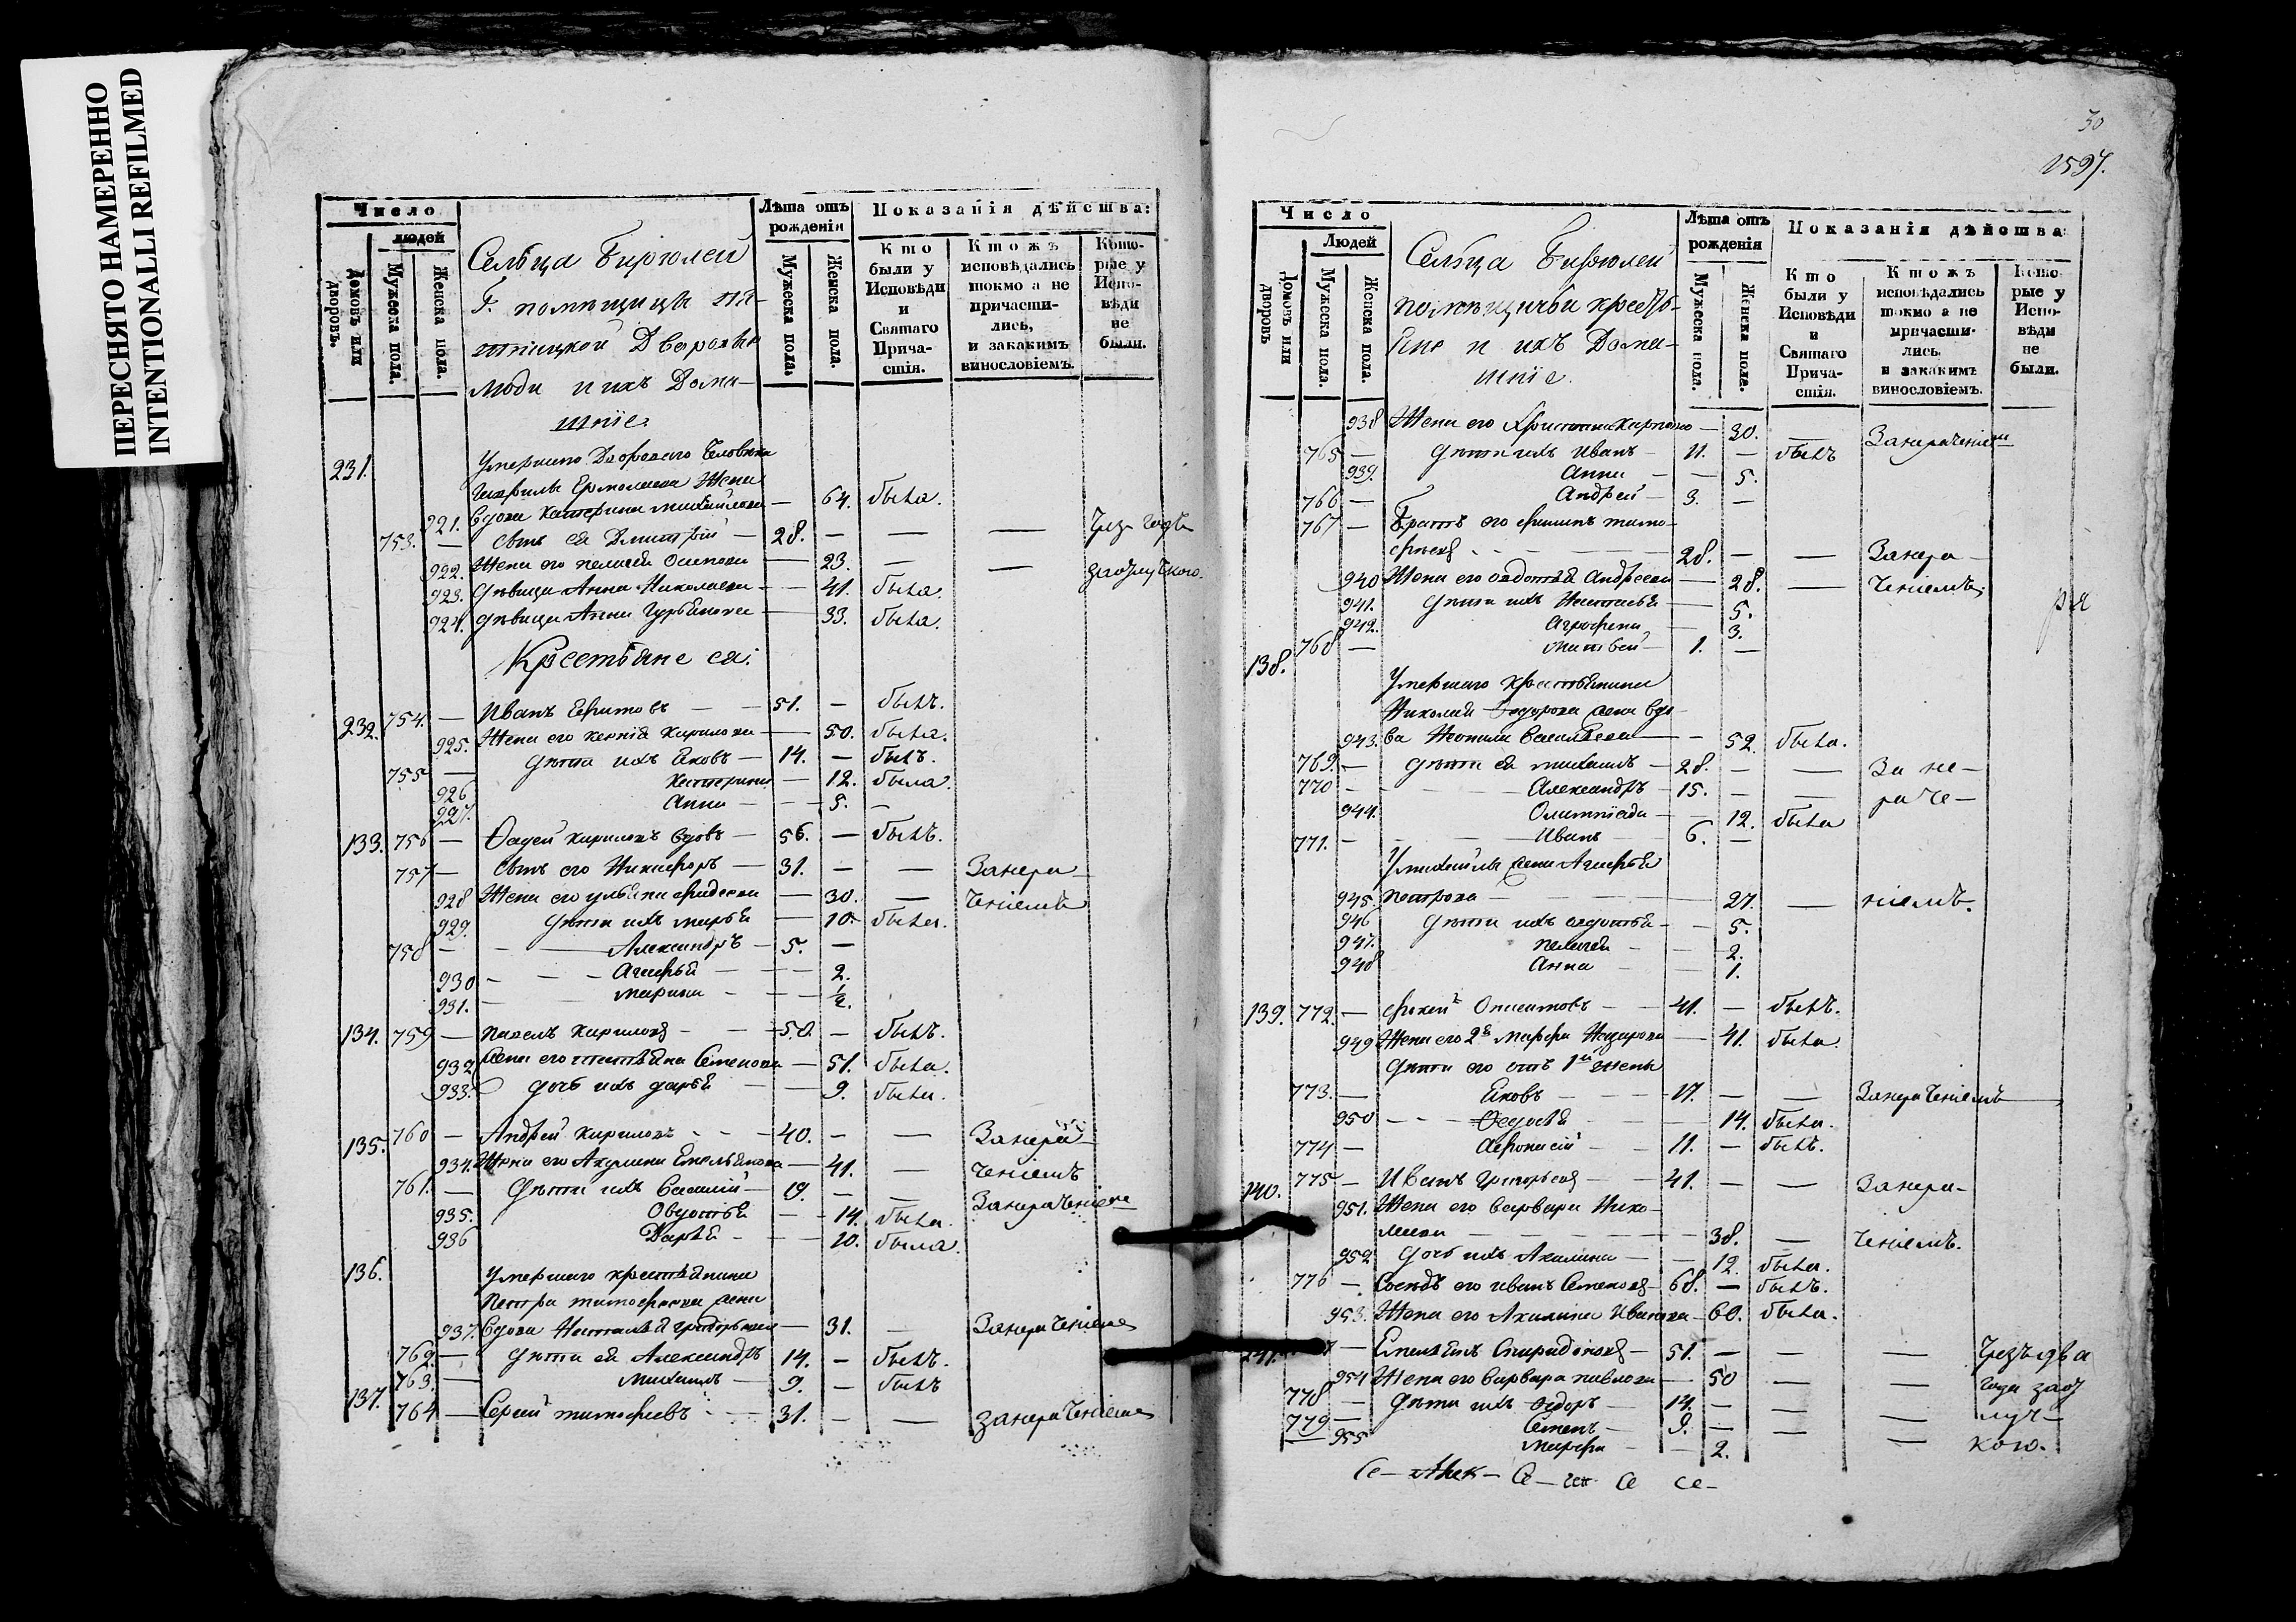 ПЕРЕСНЯТО НАМЕРЕННО
INTENTIONALLI REFILMED
Число
людей
Домовъ или дворовъ.
Мужеска пола.
Женска пола.
Сельца Бирюлей
Г. помѣщицы
Дворовые
люди и ихъ Дома-
шніе
Лѣта отъ рожденія
Мужеска пола.
Женска пола.
Показанія дѣйства:
Кто были у Исповѣди и Святаго Причастія.
Ктожъ исповѣдались токмо а не причастились, и закакимъ винословіемъ.
Которые у Исповѣди не были.
231. Умершаго Двороваго Человѣка
Гаврилы Ермолаева Жена
921. Вдова Катерина Михайлова — 64. была.
753. — Сынъ ея Димитрій — 28. — — —
922. Жена его Пелагея Осипова — 23. — —
923. Дѣвица Анна Николаева — — 41. была.
924. Дѣвица Анна — 33. была.
Крестьяне ея:
232. 754. — Иванъ Ефимовъ — — 51. — былъ.
925. Жена его Ксенія Кирилова — 50. была.
755 — Дѣти ихъ Яковъ — 14. — былъ.
926 Катерина — 12. была.
927. Анна — — 5. —
133. 756 — Фадей Кириловъ вдовъ — 56. — былъ.
757 — Сынъ его Никифоръ — 31. — — Занера-
928 Жена его Ульяна — 30. — ченіемъ
929. Дѣти ихъ Марья — 10. была.
758 — — Александръ — 5. —
930 — — — Агафья — — — 2.
931. — — Марина — — — ½.
134. 759 — Павелъ Кириловъ — — 50. — былъ.
932. Жена его Татьяна Семенова — 51. была.
933. Дочь ихъ Дарья — — 9. была.
135. 760 — Андрей Кириловъ — — 40. — — Занера-
934. Жена его Акулина Емельянова — 41. — ченіемъ
761. — Дѣти ихъ Василій — 19. — — Занераченіемъ
935. Овдотья — — 14. была.
936 Дарья — — — 10. была.
136. Умершаго крестьянина
Петра Тимофеева жена
937. Вдова Наталья Григорьева — 31. — Занераченіемъ
762. — Дѣти ея Александръ 14. — былъ.
763. — Михаилъ — 9. — былъ
137. 764 — Сергей Тимофеевъ — — 31. — — Занераченіемъ
30
1597.
Число
Людей
Домовъ или дворовъ
Мужеска пола.
Женска пола.
Сельца Бирюлей
помѣщичьи кресть-
яне и ихъ Дома-
шніе.
Лѣта отъ рожденія
Мужеска пола.
Женска пола.
Показанія дѣйства
Кто были у Исповѣди и Святаго Причастія.
Ктожъ исповѣдались токмо а не причастились. и закакимъ винословіемъ.
Которые у Исповѣди не были.
938 Жена его — 30. — Занераченіемъ
765 — Дѣти ихъ Иванъ — 11. — былъ
939. Анна — — 5.
766 — Андрей — 3. —
767 — Братъ его Филипъ Тимо-
феевъ — — — 28. — — Занера-
940 Жена его Овдотья Андреева — 28. — ченіемъ
941. Дѣти ихъ Наталья — 5.
942. Агрофена — 3.
768 — Матвей — 1. —
138. Умершаго Крестьянина
Николая Федорова жена вдо-
943. ва Неонила Васильева — — 52. была.
769. — Дѣти ея Михаилъ — 28. — — За не-
770 — — — Александръ — 15. — — раче-
944. Олимпіада — 12. была
771. — — — Иванъ 6. —
У Михайлы жена Агафья
945. Петрова — — — 27. — ніемъ.
946 Дѣти ихъ Овдотья — — 5.
947. Пелагея — — 2.
948 Анна — — 1.
139. 772. — — — 41. — былъ.
949 Жена его 2я Марфа Назарова — 41. была.
Дѣти его отъ 1й жены
773. — Яковъ — — — 17. — — Занераченіемъ
950 — — — Федосья — — — 14. была.
774 — Афонасій — — 11. — былъ.
140. 775 — Иванъ Григорьевъ — 41. — — Занера-
951. Жена его Варвара Нико-
лаева — — — 38. — ченіемъ.
952 Дочь ихъ Акилина — — 12. была.
776 — Сосѣдъ его Иванъ Семеновъ — 68. — былъ.
953. Жена его Акилина Иванова — 60. была.
141. — Емельянъ Спиридоновъ — 51. — — — Чрезъ два
954 Жена его Варвара Павлова — 50 — — года за от
778 — Дѣти ихъ Федоръ — 14. — — — луч-
779 — Семенъ — 9. — — — кою.
955 Марфа — — 2.